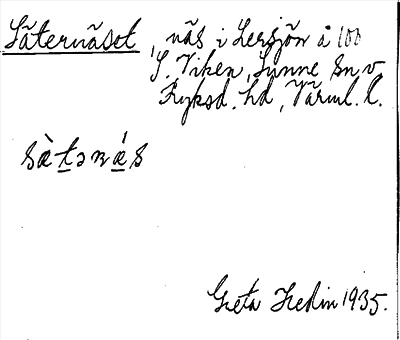 Säternäset, näs i Lersjön å 100
S. Viken, Lunne sn v.
Fryksd. hd, Värml. l.
sæ̀tənǽs
Greta Hedin 1935.